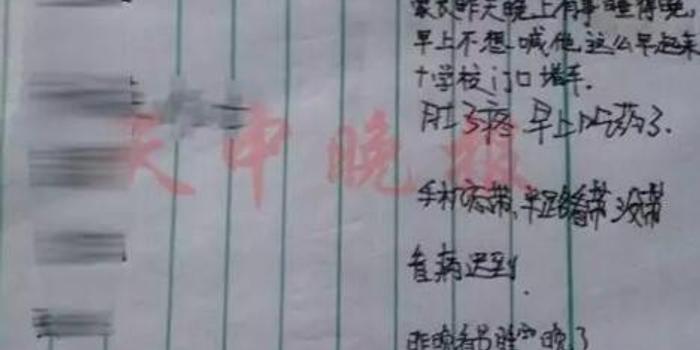 家长昨天晚上有事睡得晚,
早上不想喊他这么早起来
+学校门口堵车.
肚子疼 早上吃药了.
天中晚报
手机忘带,半路 带 没带
看病迟到.
昨晚看书睡 晚了